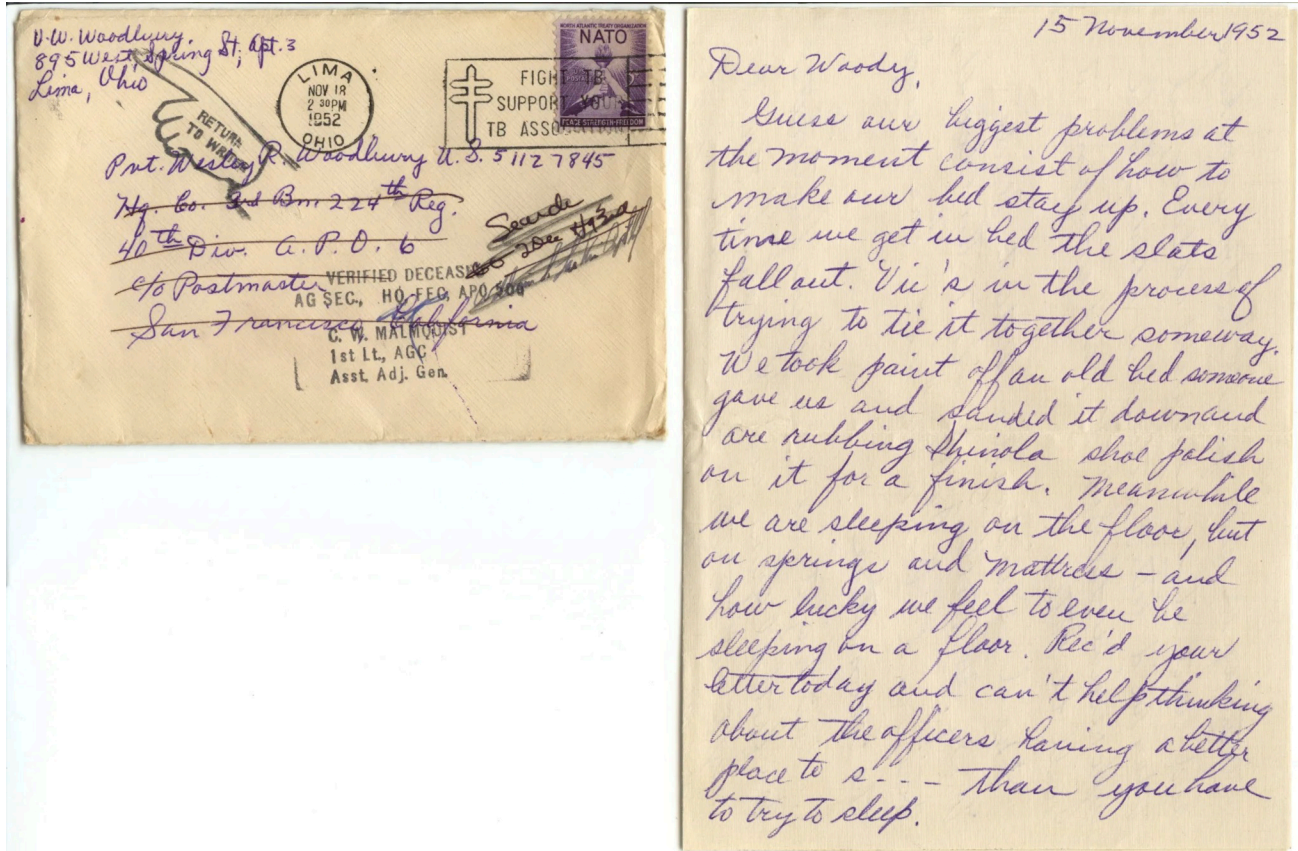 V.W. Woodbury.
895 West Spring St, Apt. 3
Lima, Ohio
RETURN
TO WRITER
LIMA
NOV 18
2 30 PM
1952
OHIO
FIGHT TB
SUPPORT YOUR
TB ASSOCIATION
NORTH ATLANTIC TREATY ORGANIZATION
NATO
PEACE STRENGTH FREEDOM
Pvt. Wesley R. Woodbury U.S. 51127845
Hq. Co. 3rd Bn. 224th Reg.
40th Div. A.P.O. 6
c/o Postmaster
San Francisco California
Search
2 Dec
VERIFIED DECEASED
AG SEC., HQ, FEC, APO 500
C. W. MALMQUIST
1st Lt., AGC
Asst. Adj. Gen.
15 November 1952
Dear Woody,
Guess our biggest problems at
the moment consist of how to
make our bed stay up. Every
time we get in bed the slats
fall out. Vic's in the process of
trying to tie it together someway.
We took paint off an old bed someone
gave us and sanded it down and
are rubbing Shinola shoe polish
on it for a finish. Meanwhile
we are sleeping on the floor, but
on springs and mattress – and
how lucky we feel to even be
sleeping on a floor. Rec'd your
letter today and can't help thinking
about the officers having a better
place to s... – than you have
to try to sleep.